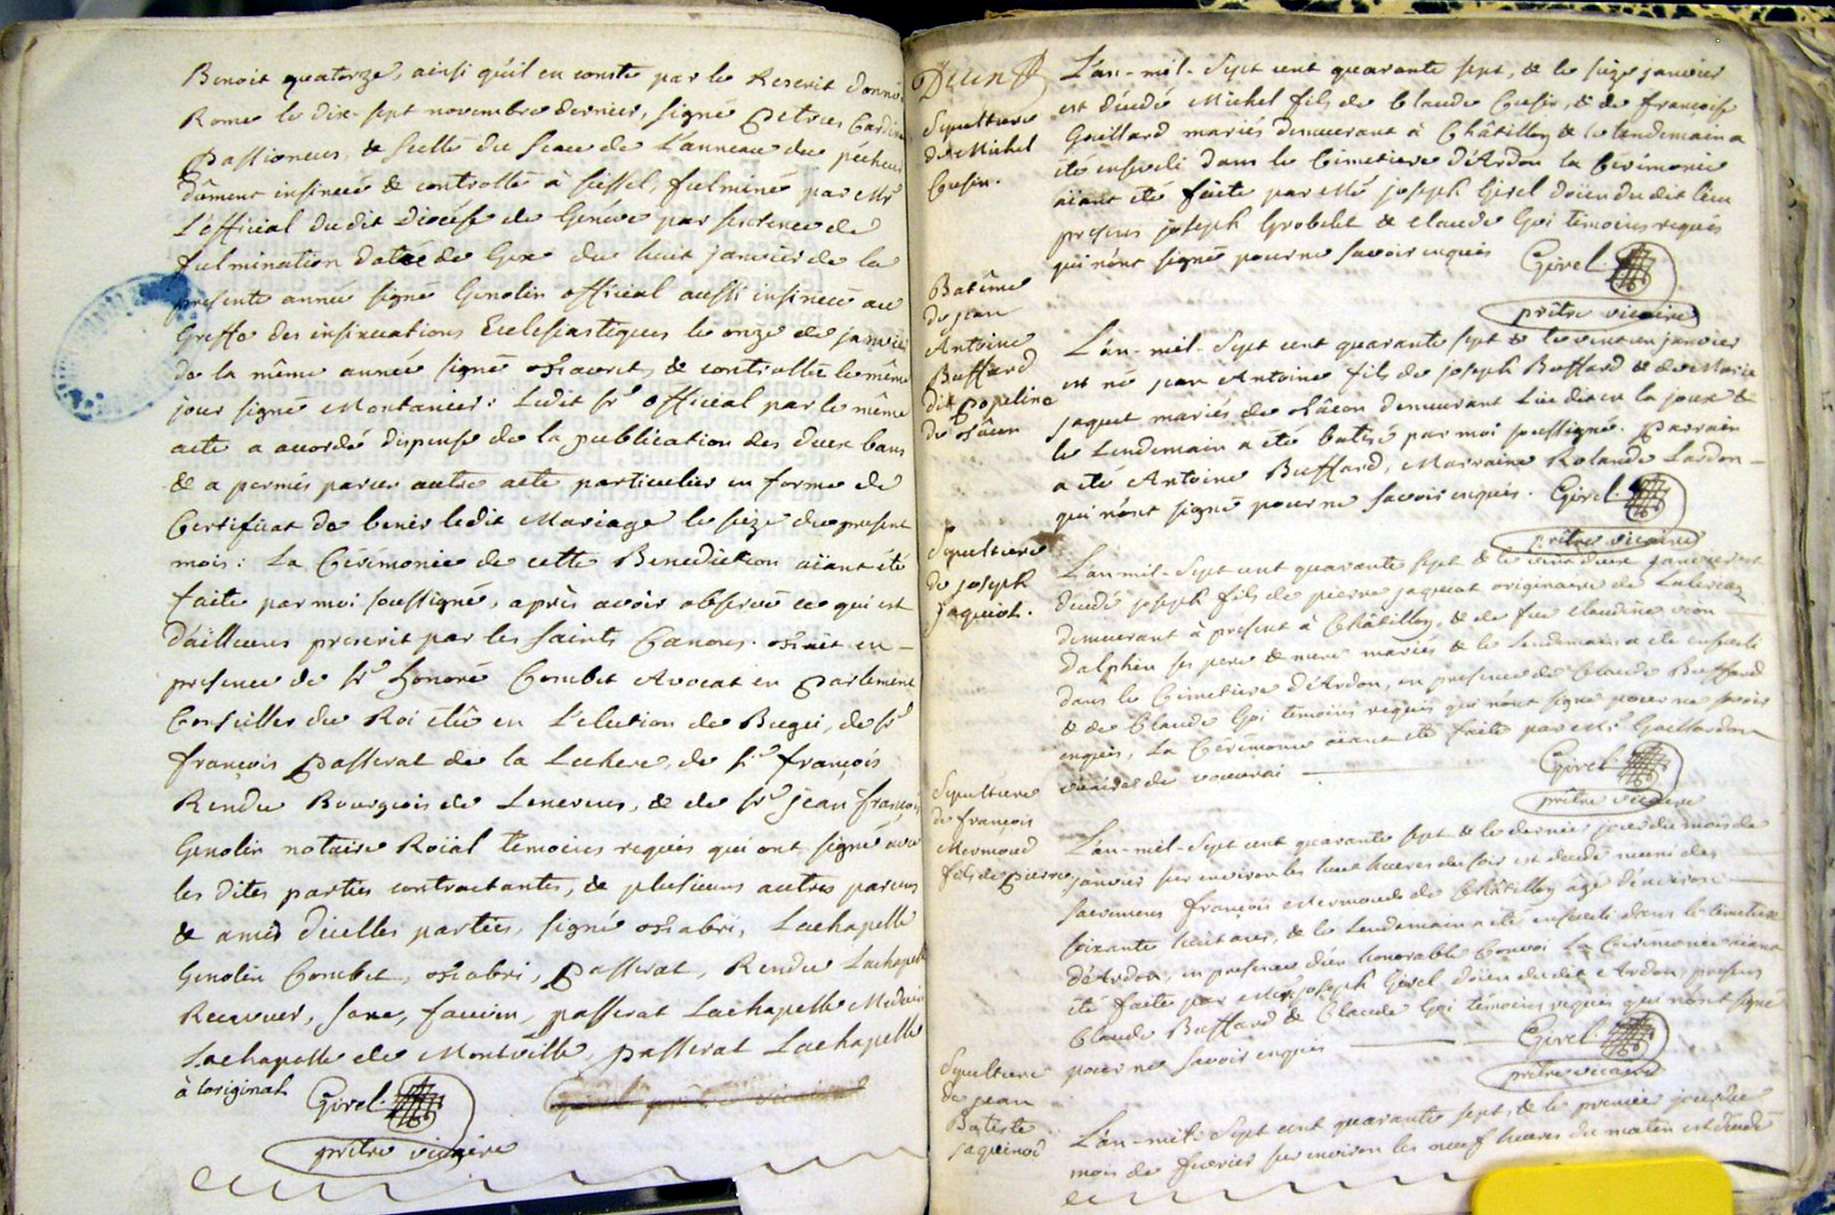 Benoit quatorze, ainsi qu'il en conste par le Rescrit donné
Rome le dix-sept novembre dernier, signé Petrus Cardin
Passioneus, & scellé du sceau de L'anneau du pécheur
dûment insinué & controllé à Seissel, fulminé par Mr
L'official du dit Diocése de Genéve par sentence de
fulmination datée de Gex du huit janvier de la
presente année signé Genolin official aussi insinué au
Greffe des insinuations Ecclesiastiques le onze de janvier
de la même année signé & controllé le même
jour signé Montanier: Ledit Sr official par le même
acte a accordé dispense de la publication des deux bans
& a permis par un autre acte particulier en forme de
Certificat de benir ledit Mariage le seize du present
mois: La Cérémonie de cette Benediction aïant été
faite par moi soussigné, après avoir observé ce qui est
d'ailleurs prescrit par les saints Canons. en
presence de Sr honoré Combet Avocat en Parlement
Conseiller du Roi élû en L'election de Bugei, de Sr
françois Passerat de la de Sr françois
Rendu Bourgeois de & de Sr jean françois
Genolin notaire Roïal temoins requis qui ont signé avec
les dites parties contractantes, & plusieurs autres parens
& amis d'icelles parties, signé Lachapelle
Genolin Combet, Passerat, Rendu Lachapelle
passerat Lachapelle Medecin
Lachapelle de Montville, passerat Lachapelle
à l'original Girel
prêtre vicaire
Sepulture
de Michel
Cusin.
L'an-mil-Sept cent quarante sept, & le seize janvier
est décedé Michel fils de Claude Cusin, & de françoise
Gaillard mariés demeurant à Châtillon & le lendemain a
été enseveli dans le Cimetiere d'Ardon la Cerémonie
aïant été faite par Mre joseph Girel doïen du dit lieu
presens joseph Grobelet & Claude Goi témoins requis
qui n'ont signé pour ne savoir enquis Girel
prêtre vicaire
Batême
de jean
Antoine
Buffard
dit Popelin
de
L'an-mil-Sept cent quarante sept & le vint un janvier
est né jean Antoine fils de joseph Buffard & de Marie
jaquet mariés de demeurant Lieu dit en la joux &
le Lendemain a été batisé par moi soussigné. Parrain
a été Antoine Buffard, Marraine Rolande Lardon
qui n'ont signé pour ne savoir enquis. Girel
prêtre vicaire
Sepulture
de joseph
jaquiot.
L'an mil-Sept cent quarante sept & le vint deux janvier est
décedé joseph fils de pierre jaquiot originaire de
demeurant à present à Châtillon, & de feu Claudine
Dalphin ses pere & mere mariés & le Lendemain a été enseveli
dans le Cimetiere d'Ardon, en presence de Claude Buffard
& de Claude Goi témoins requis qui n'ont signé pour ne savoir
enquis, La Cérémonie aïant été faite par Mr
vicaire de vouvrai Girel
prêtre vicaire
Sepulture
de françois
Mermoud
fils de Pierre
L'an-mil-Sept cent quarante sept & le dernier jour du mois de
janvier sur environ les huit heures du soir est decedé muni des
sacremens françois Mermoud de Châtillon âgé d'environ
soixante huit ans, & le Lendemain a été enseveli dans le Cimetiere
d'Ardon, en presence d'un honorable Convoi La Cérémonie aïant
été faite par Mre joseph Girel doïen du dit Ardon, presens
Claude Buffard & Claude Goi témoins requis qui n'ont signé
pour ne savoir enquis Girel
prêtre vicaire
Sepulture
de jean
Batiste
jaquinod
L'an-mil-Sept cent quarante sept, & le premier jour du
mois de fevrier sur environ les neuf heures du matin est décedé